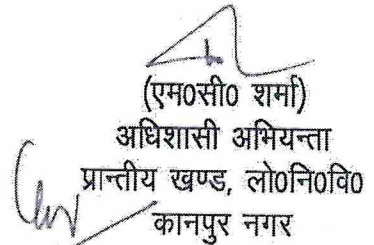 (एम0सी0 शर्मा)
अधिशासी अभियन्ता
प्रान्तीय खण्ड, लो0नि0वि0
कानपुर नगर